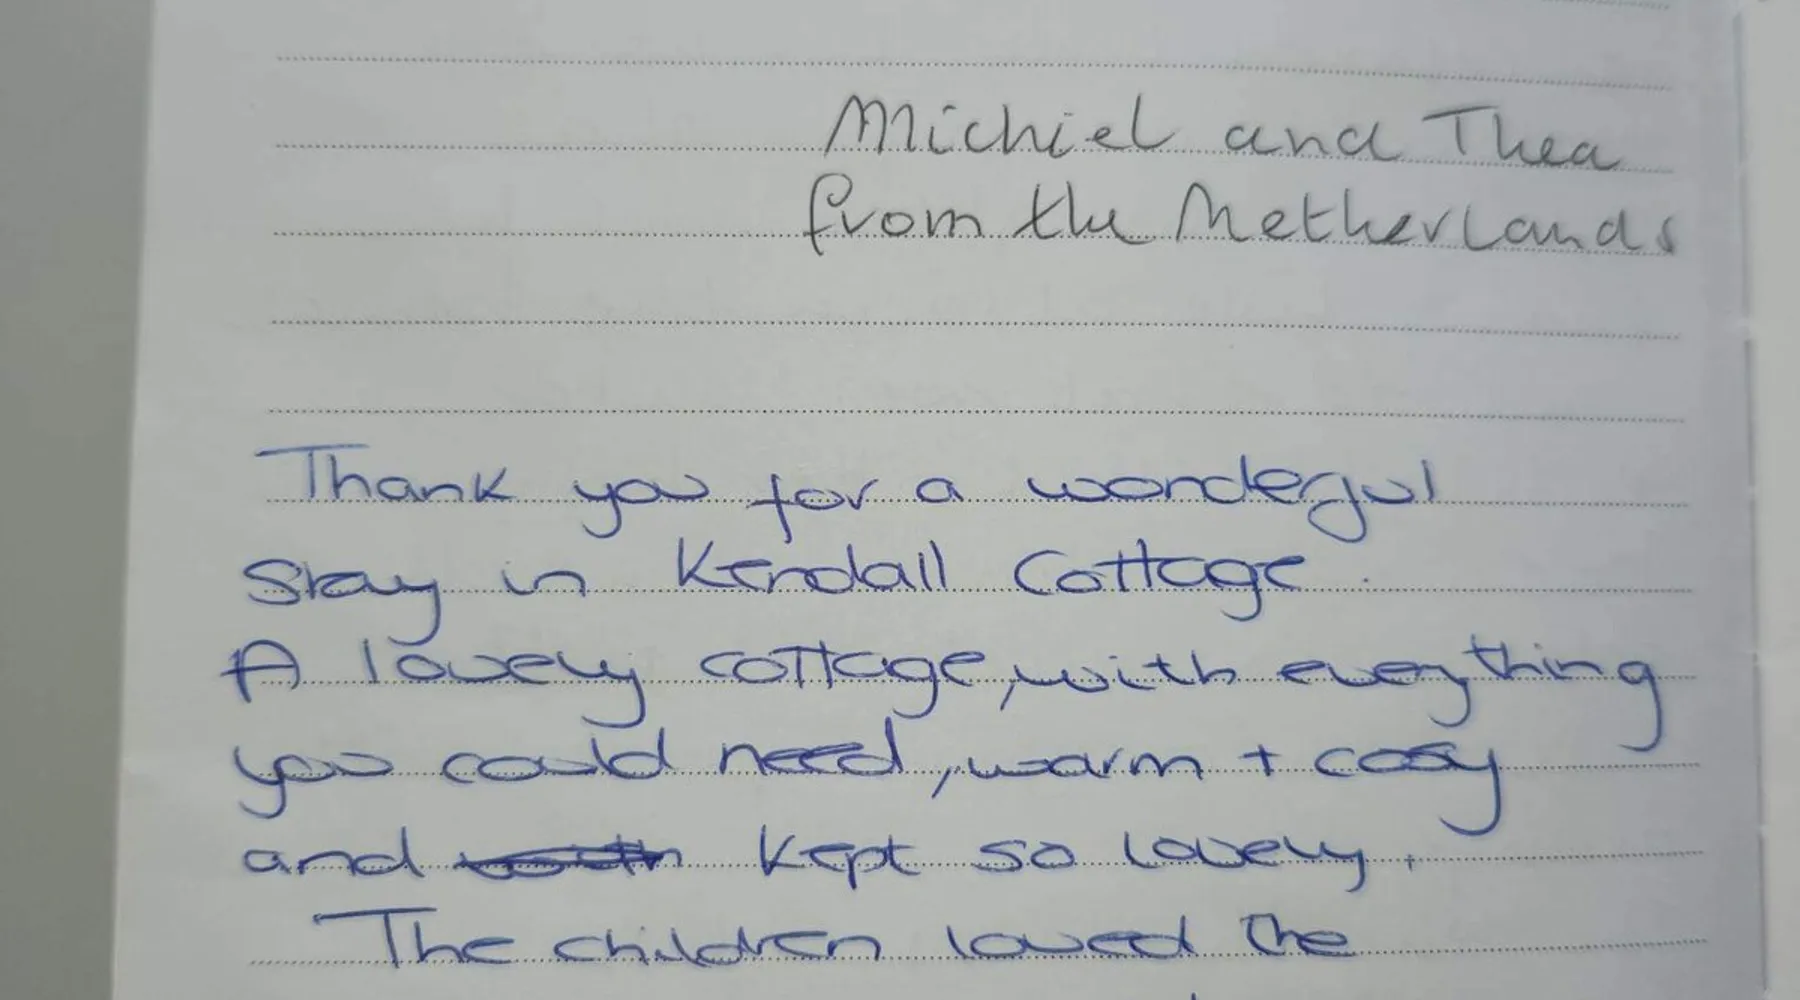 Michiel and Thea
from the Netherlands
Thank you for a wonderful
stay in Kendall Cottage.
A lovely cottage, with everything
you could need, warm + cosy
and kept so lovely.
The children loved the